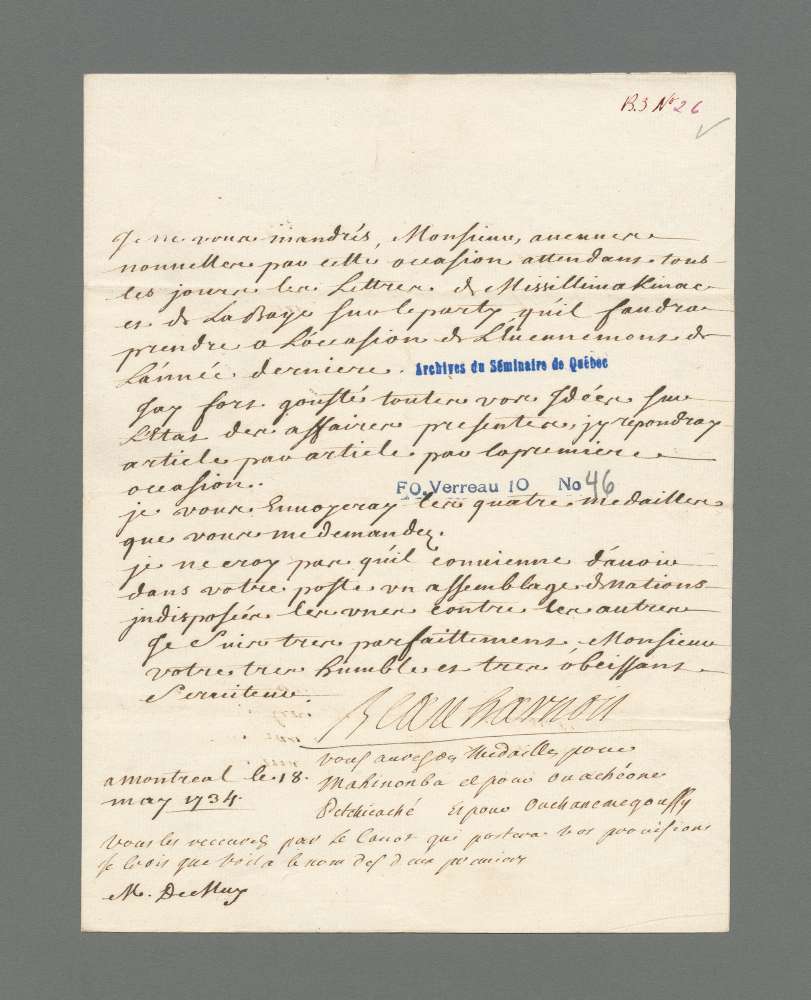 B.3 No 26
Je ne vous mandrés, Monsieur, aucunes
nouvelles par cette occasion attendant tous
les jours les Lettres de Missilimakinac
et de La Baye sur le party qu'il faudra
prendre a L'occasion de L'Evennement de
L'année derniere.
Archives du Séminaire de Québec
J'ay fort gousté toutes vos Idées sur
L'Etat des affaires presentes, j'y repondray
article par article par la premiere
occasion.
FO. Verreau 10 No 46
je vous Envoyeray les quatre medailles
que vous me demandez.
je ne croy pas qu'il convienne d'avoir
dans votre poste un assemblage de nations
jndisposées les unes contre les autres
Je Suis tres parfaittement Monsieur
votre tres humble et tres obeissant
Serviteur.
Beauharnois
a Montreal le 18.
may 1734.
vous aurez des Medailles pour
Mahinonba et pour Ouachéone
Petchicaché et pour Ouchanemegoussy
Vous les recevrez par le Canot qui portera vos provisions
Je Crois que voila le nom des deux premiers
M. DeMuy